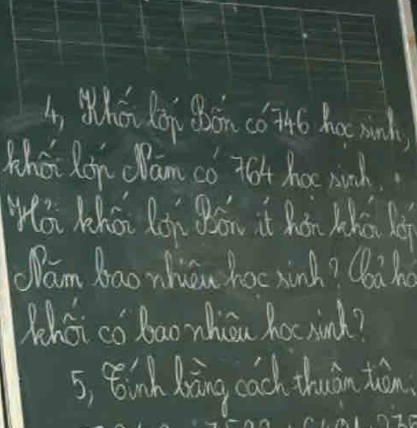 4, Khối lớp Bốn có 746 học sinh,
khối lớp Năm có 764 học sinh.
Hỏi khối lớp Bốn ít hơn khối lớp
Năm bao nhiêu học sinh? Cả ha
khối có bao nhiêu học sinh?
5, Tính bằng cách thuận tiện: